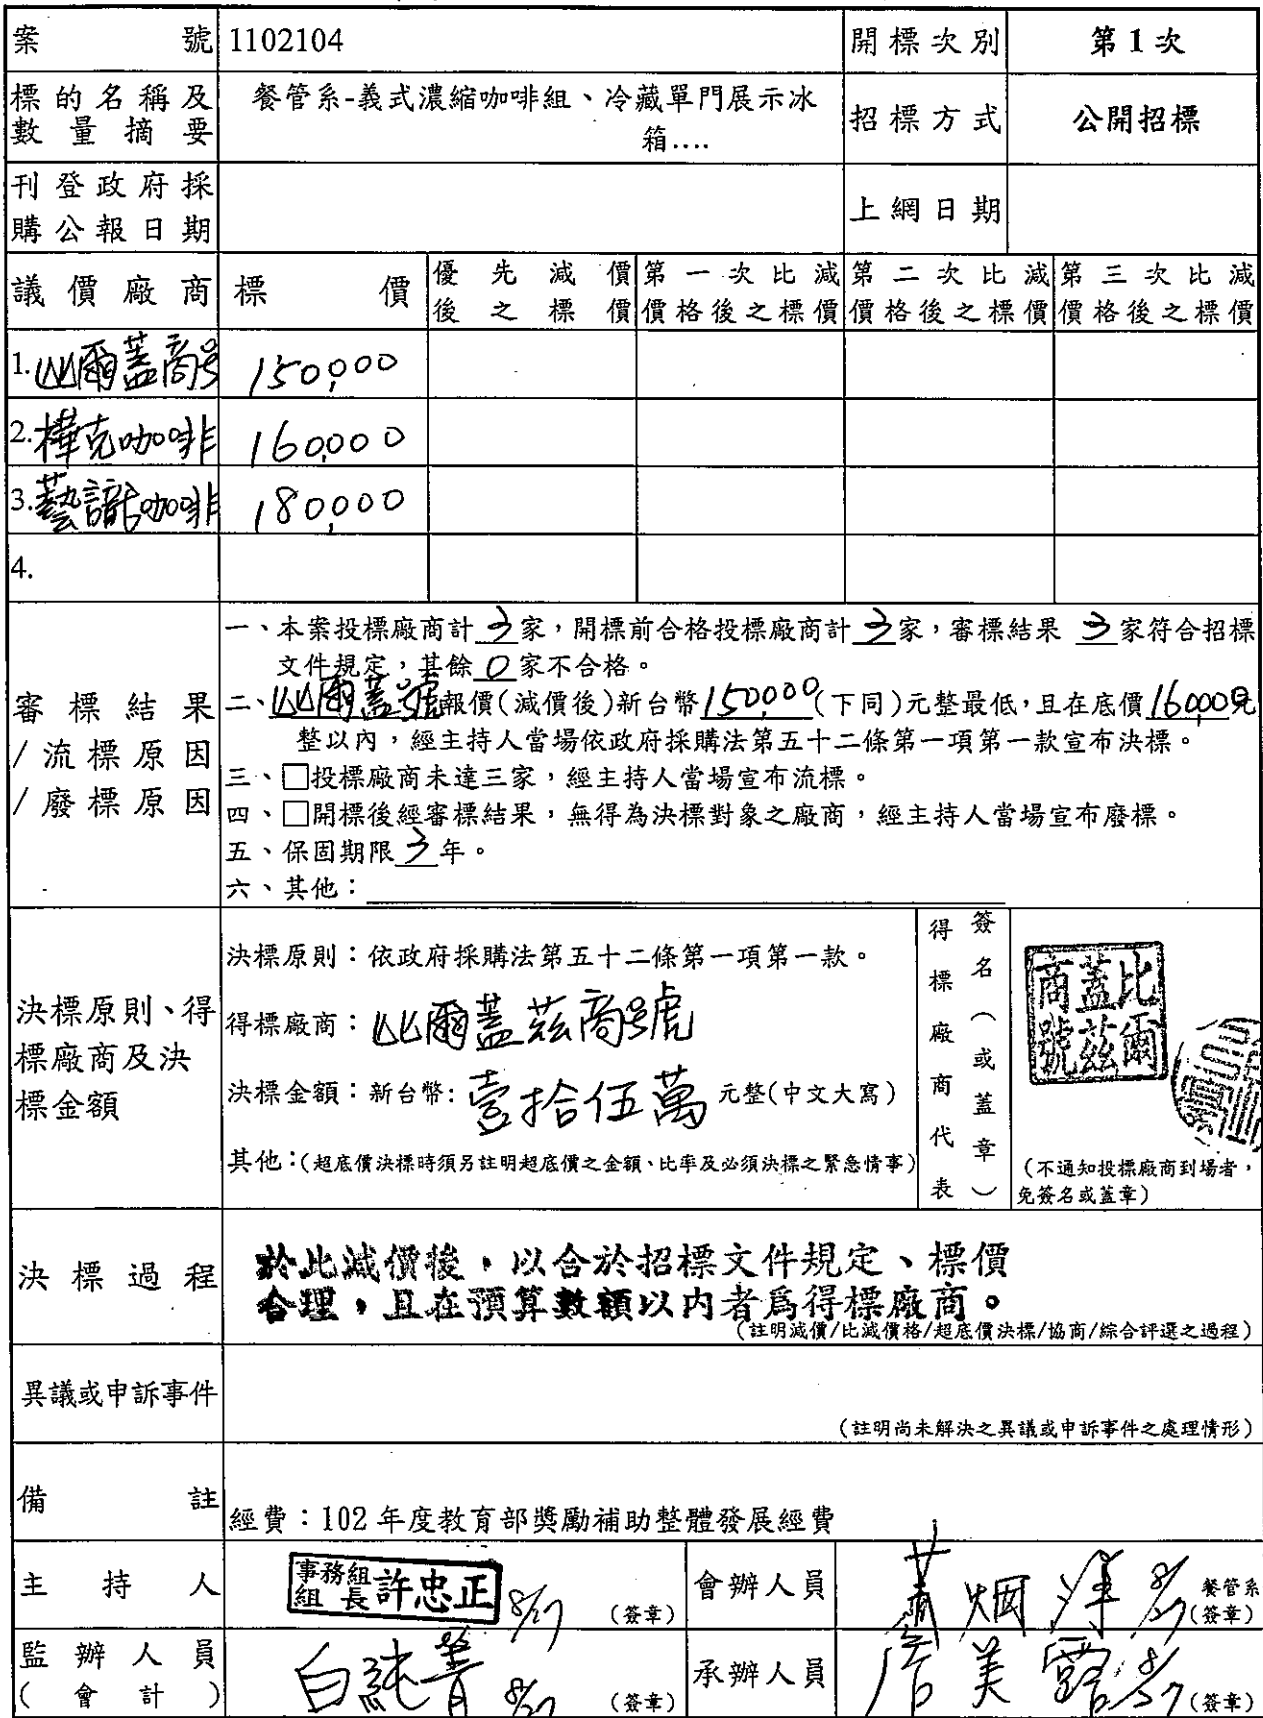 案號 1102104 開標次別 第1次
標的名稱及數量摘要 餐管系-義式濃縮咖啡組、冷藏單門展示冰箱.... 招標方式 公開招標
刊登政府採購公報日期 上網日期
議價廠商 標價 優先減價後之標價 第一次比減價格後之標價 第二次比減價格後之標價 第三次比減價格後之標價
1.比爾蓋商号 150,000
2.樺克咖啡 160,000
3.藝咖啡 180,000
4.
審標結果/流標原因/廢標原因
一、本案投標廠商計 3 家,開標前合格投標廠商計 3 家,審標結果 3 家符合招標
文件規定,其餘 0 家不合格。
二、比爾蓋號報價(減價後)新台幣150,000(下同)元整最低,且在底價160,000元
整以內,經主持人當場依政府採購法第五十二條第一項第一款宣布決標。
三、□投標廠商未達三家,經主持人當場宣布流標。
四、□開標後經審標結果,無得為決標對象之廠商,經主持人當場宣布廢標。
五、保固期限 3 年。
六、其他:
決標原則、得標廠商及決標金額
決標原則:依政府採購法第五十二條第一項第一款。
得標廠商:比爾蓋茲商號
決標金額:新台幣:壹拾伍萬 元整(中文大寫)
其他:(超底價決標時須另註明超底價之金額、比率及必須決標之緊急情事)
得標廠商代表 簽名(或蓋章)
比爾蓋茲商號
(不通知投標廠商到場者,
免簽名或蓋章)
決標過程
於比減價後,以合於招標文件規定、標價
合理,且在預算數額以內者為得標廠商。
(註明減價/比減價格/超底價決標/協商/綜合評選之過程)
異議或申訴事件
(註明尚未解決之異議或申訴事件之處理情形)
備註 經費:102年度教育部獎勵補助整體發展經費
主持人 事務組組長 許忠正 8/27 (簽章) 會辦人員 8/27 餐管系(簽章)
監辦人員(會計) 白純菁 8/27 (簽章) 承辦人員 詹美露 8/27 (簽章)